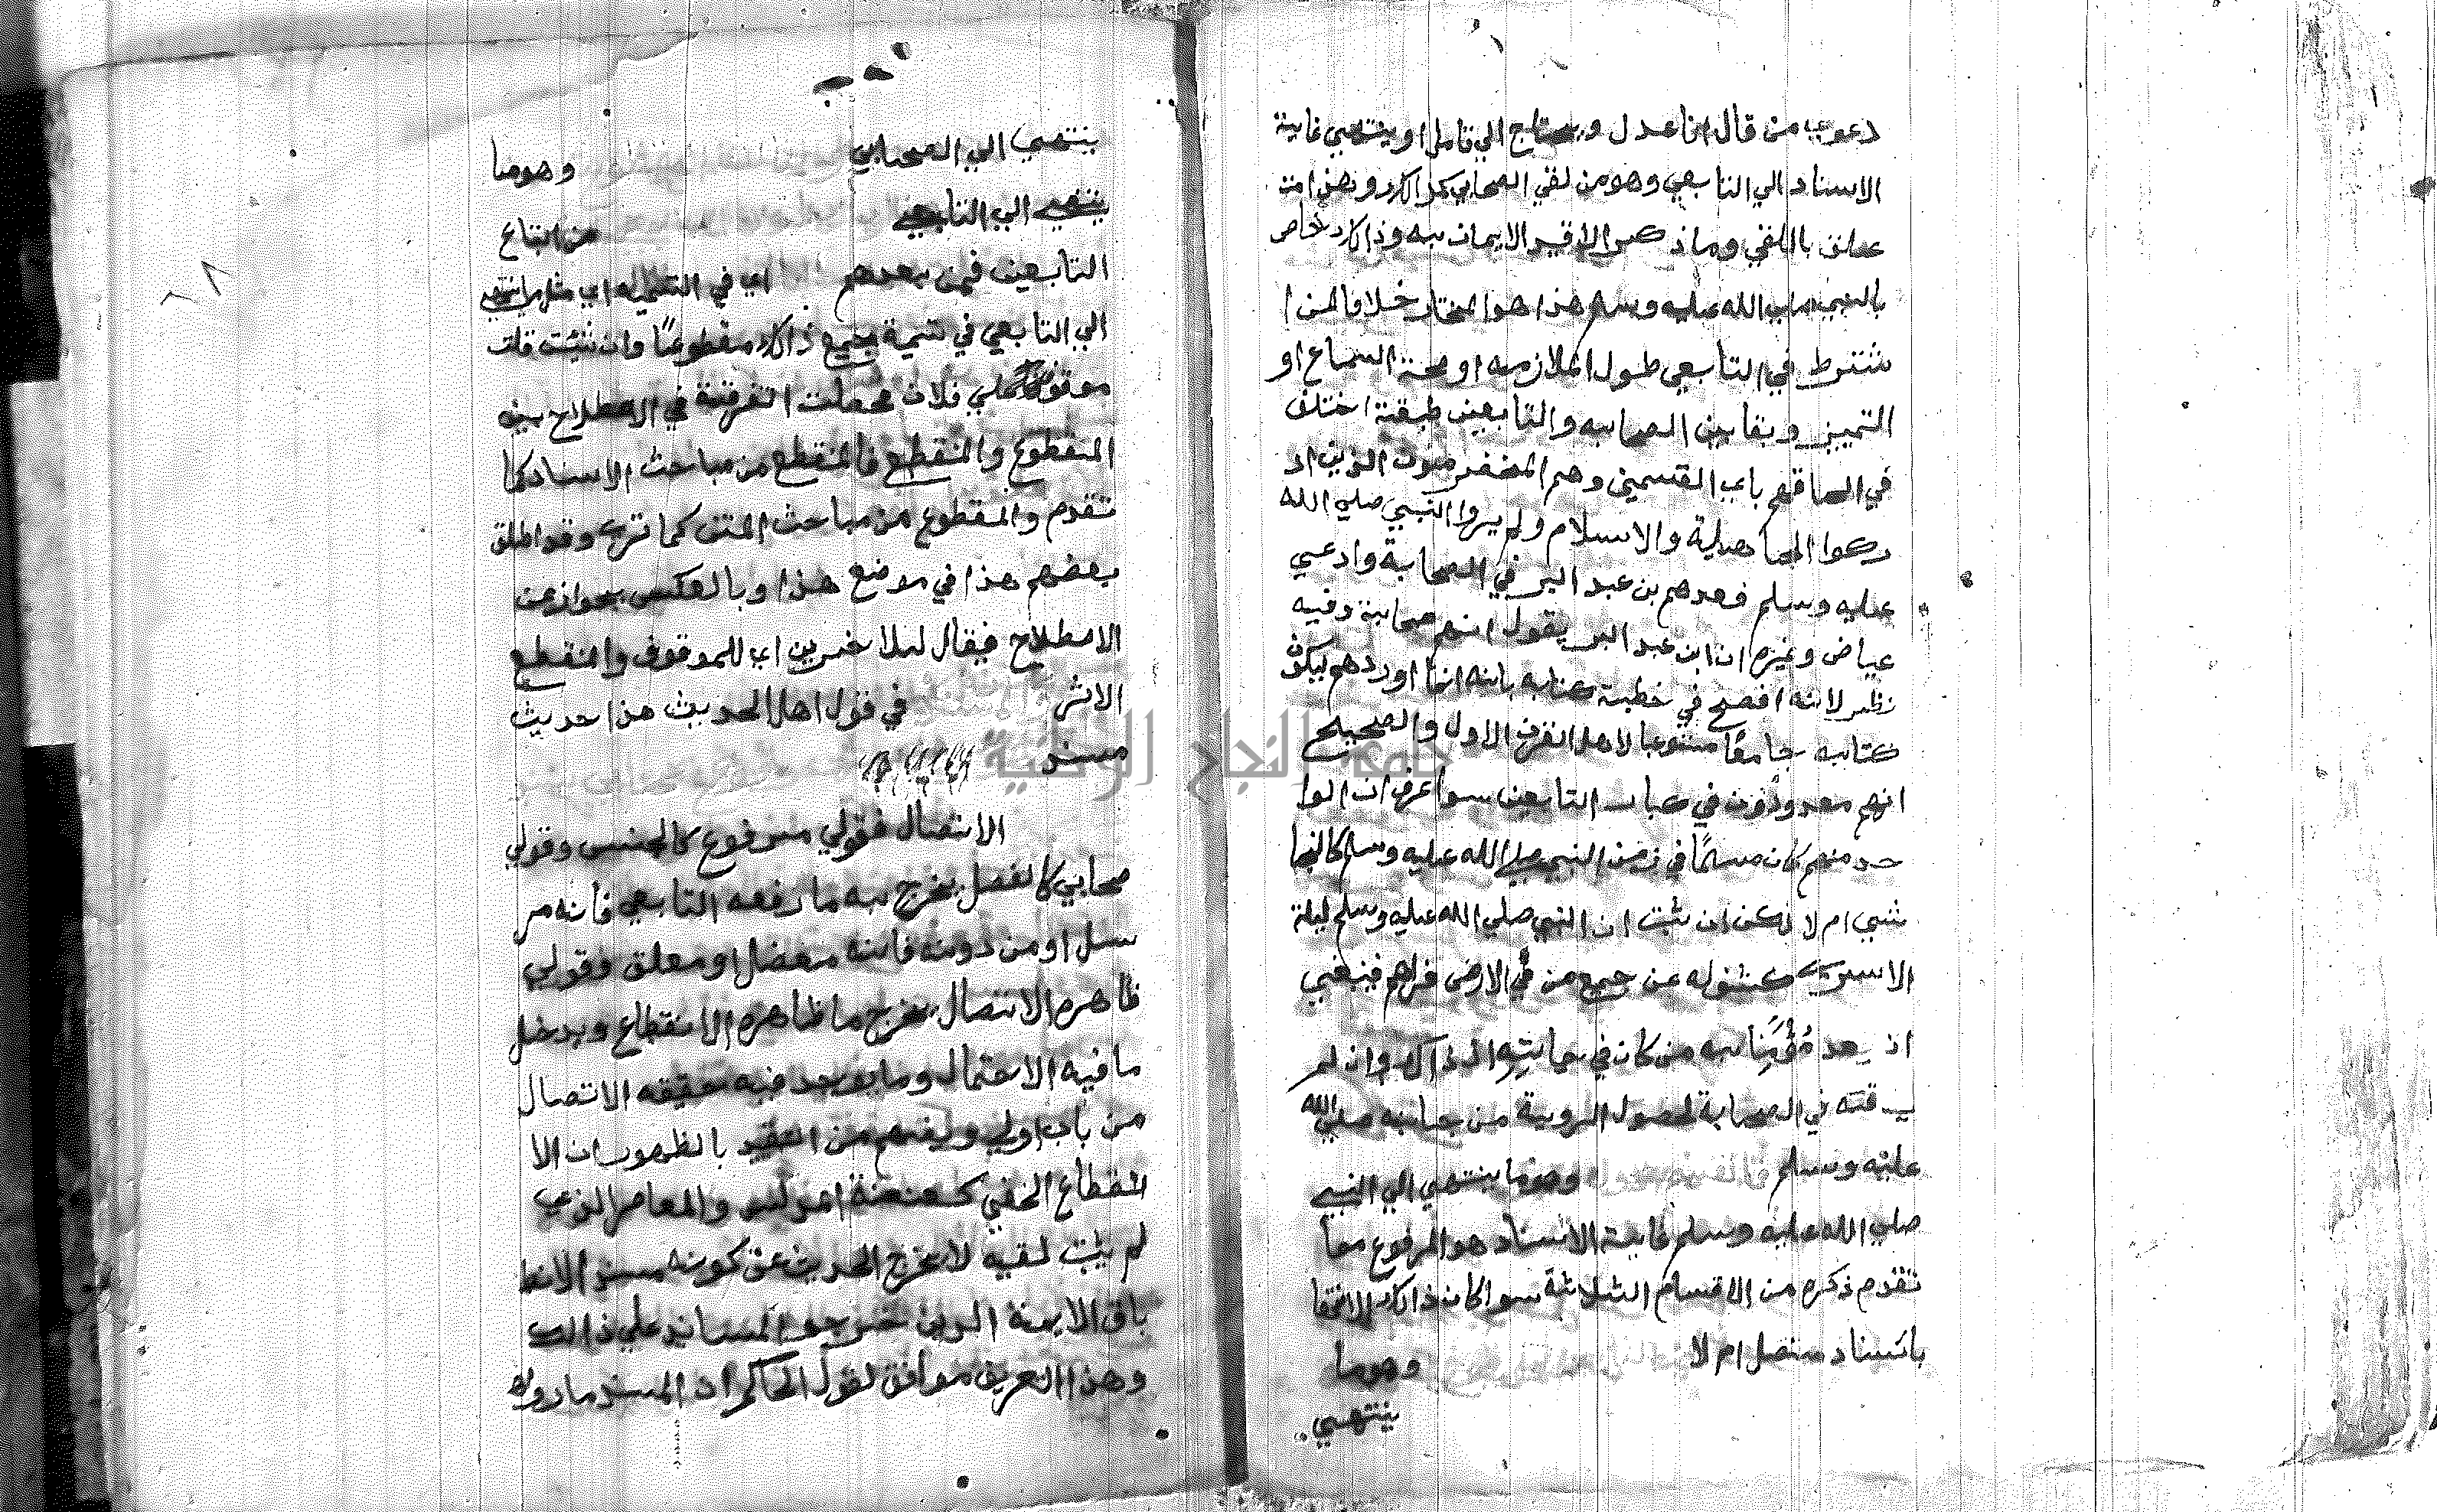 دعوي من قال انا عدل ويحتاج الي تامل او ينتهي غاية
الاسناد الي التابعي وهو من لقي الصحابي كذالك وهذا مت
علق باللقي وما ذكر الا قيد الايمان به وذالك خاص
بالنبي صلي الله عليه وسلم هذا هو المختار خلافا لمن ا
شترط في التابعي طول الملازمه او صحة السماع او
التمييز وبقا بين الصحابه والتابعين طبقة اختلف
في الحاقهم باي القسمين وهم المخضرمون الذين اد
ركوا الجاهلية والاسلام ولم يروا النبي صلي الله
عليه وسلم فعدهم بن عبد البر في الصحابة وادعي
عياض وغيره ان ابن عبد البر يقول انهم صحابة وفيه
نظر لانه افصح في خطبة كتابه بانه انما اوردهم ليكون
كتابه جامعًا مستوعبا لاهل القرن الاول والصحيح
انهم معدودون في كبار التابعين سوا عرف ان الوا
حد منهم كان مسلمًا في زمن النبي صلي الله عليه وسلم كالنجا
شي ام لا لكن ان ثبت ان النبي صلي الله عليه وسلم ليلة
الاسري كشف له عن جميع من في الارض فراهم فينبغي
ان يعد مُؤمِنًا به من كان في حياتِه اذ ذاك وان لم
يلاقه في الصحابة لحصول الروية من جانبه صلي الله
عليه وسلم وهو ما ينتهي الي النبي
صلي الله عليه وسلم غاية الاسناد هو المرفوع مما
تقدم ذكره من الاقسام الثلاثة سوا كان ذالك الانتها
باسناد متصل ام لا وهو ما
ينتهي
ينتهي الي الصحابي وهو ما
ينتهي الي التابعي من اتباع
التابعين فمن بعدهم اي في التسمية اي مثل ما ينتهي
الي التابعي في تسمية جميع ذالك مقطوعًا وان شئت قلت
موقوف علي فلان فحصلت التفرقة في الاصطلاح بين
المقطوع والمنقطع فالمنقطع من مباحث الاسناد كما
تقدم والمقطوع من مباحث المتن كما تري وقد اطلق
بعضهم هذا في موضع هذا وبالعكس تجوازا عن
الاصطلاح فيقال للاخيرين اي للموقوف والمنقطع
الاثر في قول اهل الحديث هذا حديث
مسند
الاتصال فقولي مرفوع كالجنس وقولي
صحابي كالفصل يخرج به ما رفعه التابعي فانه مر
سل او من دونه فانه معضل او معلق وقولي
ظاهره الاتصال يخرج ما ظاهره الانقطاع ويدخل
ما فيه الاحتمال وما يوجد فيه حقيقه الاتصال
من باب اولي ويفهم من التقيد بالظهور ان الا
نقطاع الخفي كعنعنة المدلس والمعاصر الذي
لم يثبت لقيه لا يخرج الحديث عن كونه مسند الاط
باق الايمة الذين خرجو المسانيد علي ذالك
وهذا التعريف موافق لقول الحاكم ان المسند ما رواه
جامعة النجاح الوطنية